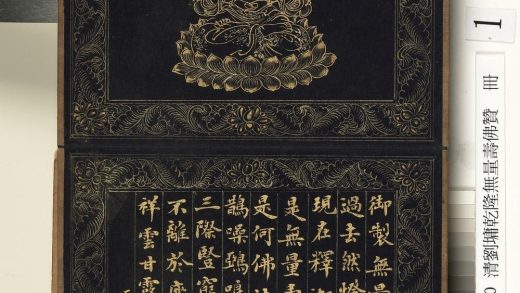 御製無量
過去然燈
現在釋
是無量壽
是何佛
鵲噪鴉鳴
三際豎窮
不離於
祥雲甘露
1
清劉墉乾隆無量壽佛贊 冊